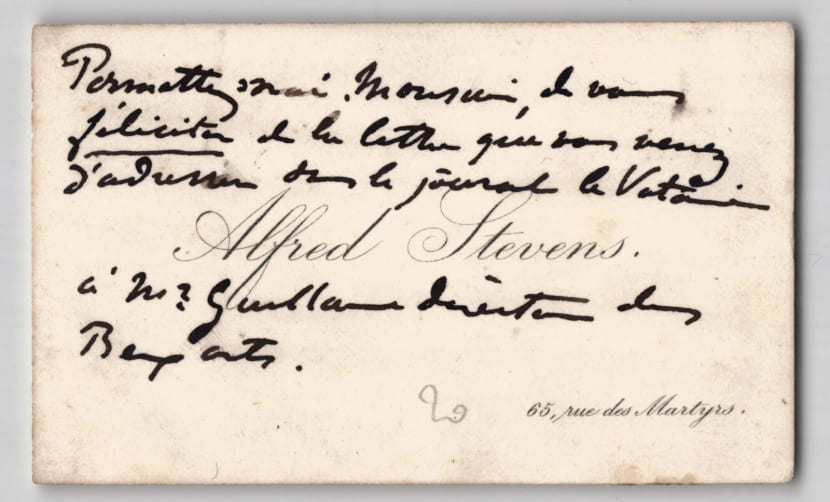 Permettez moi, Monsieur, de vous
féliciter de la lettre que vous venez
d'adresser dans le journal le Voltaire
Alfred Stevens.
à Mr Guillaume directeur des
Beaux arts.
65, rue des Martyrs.